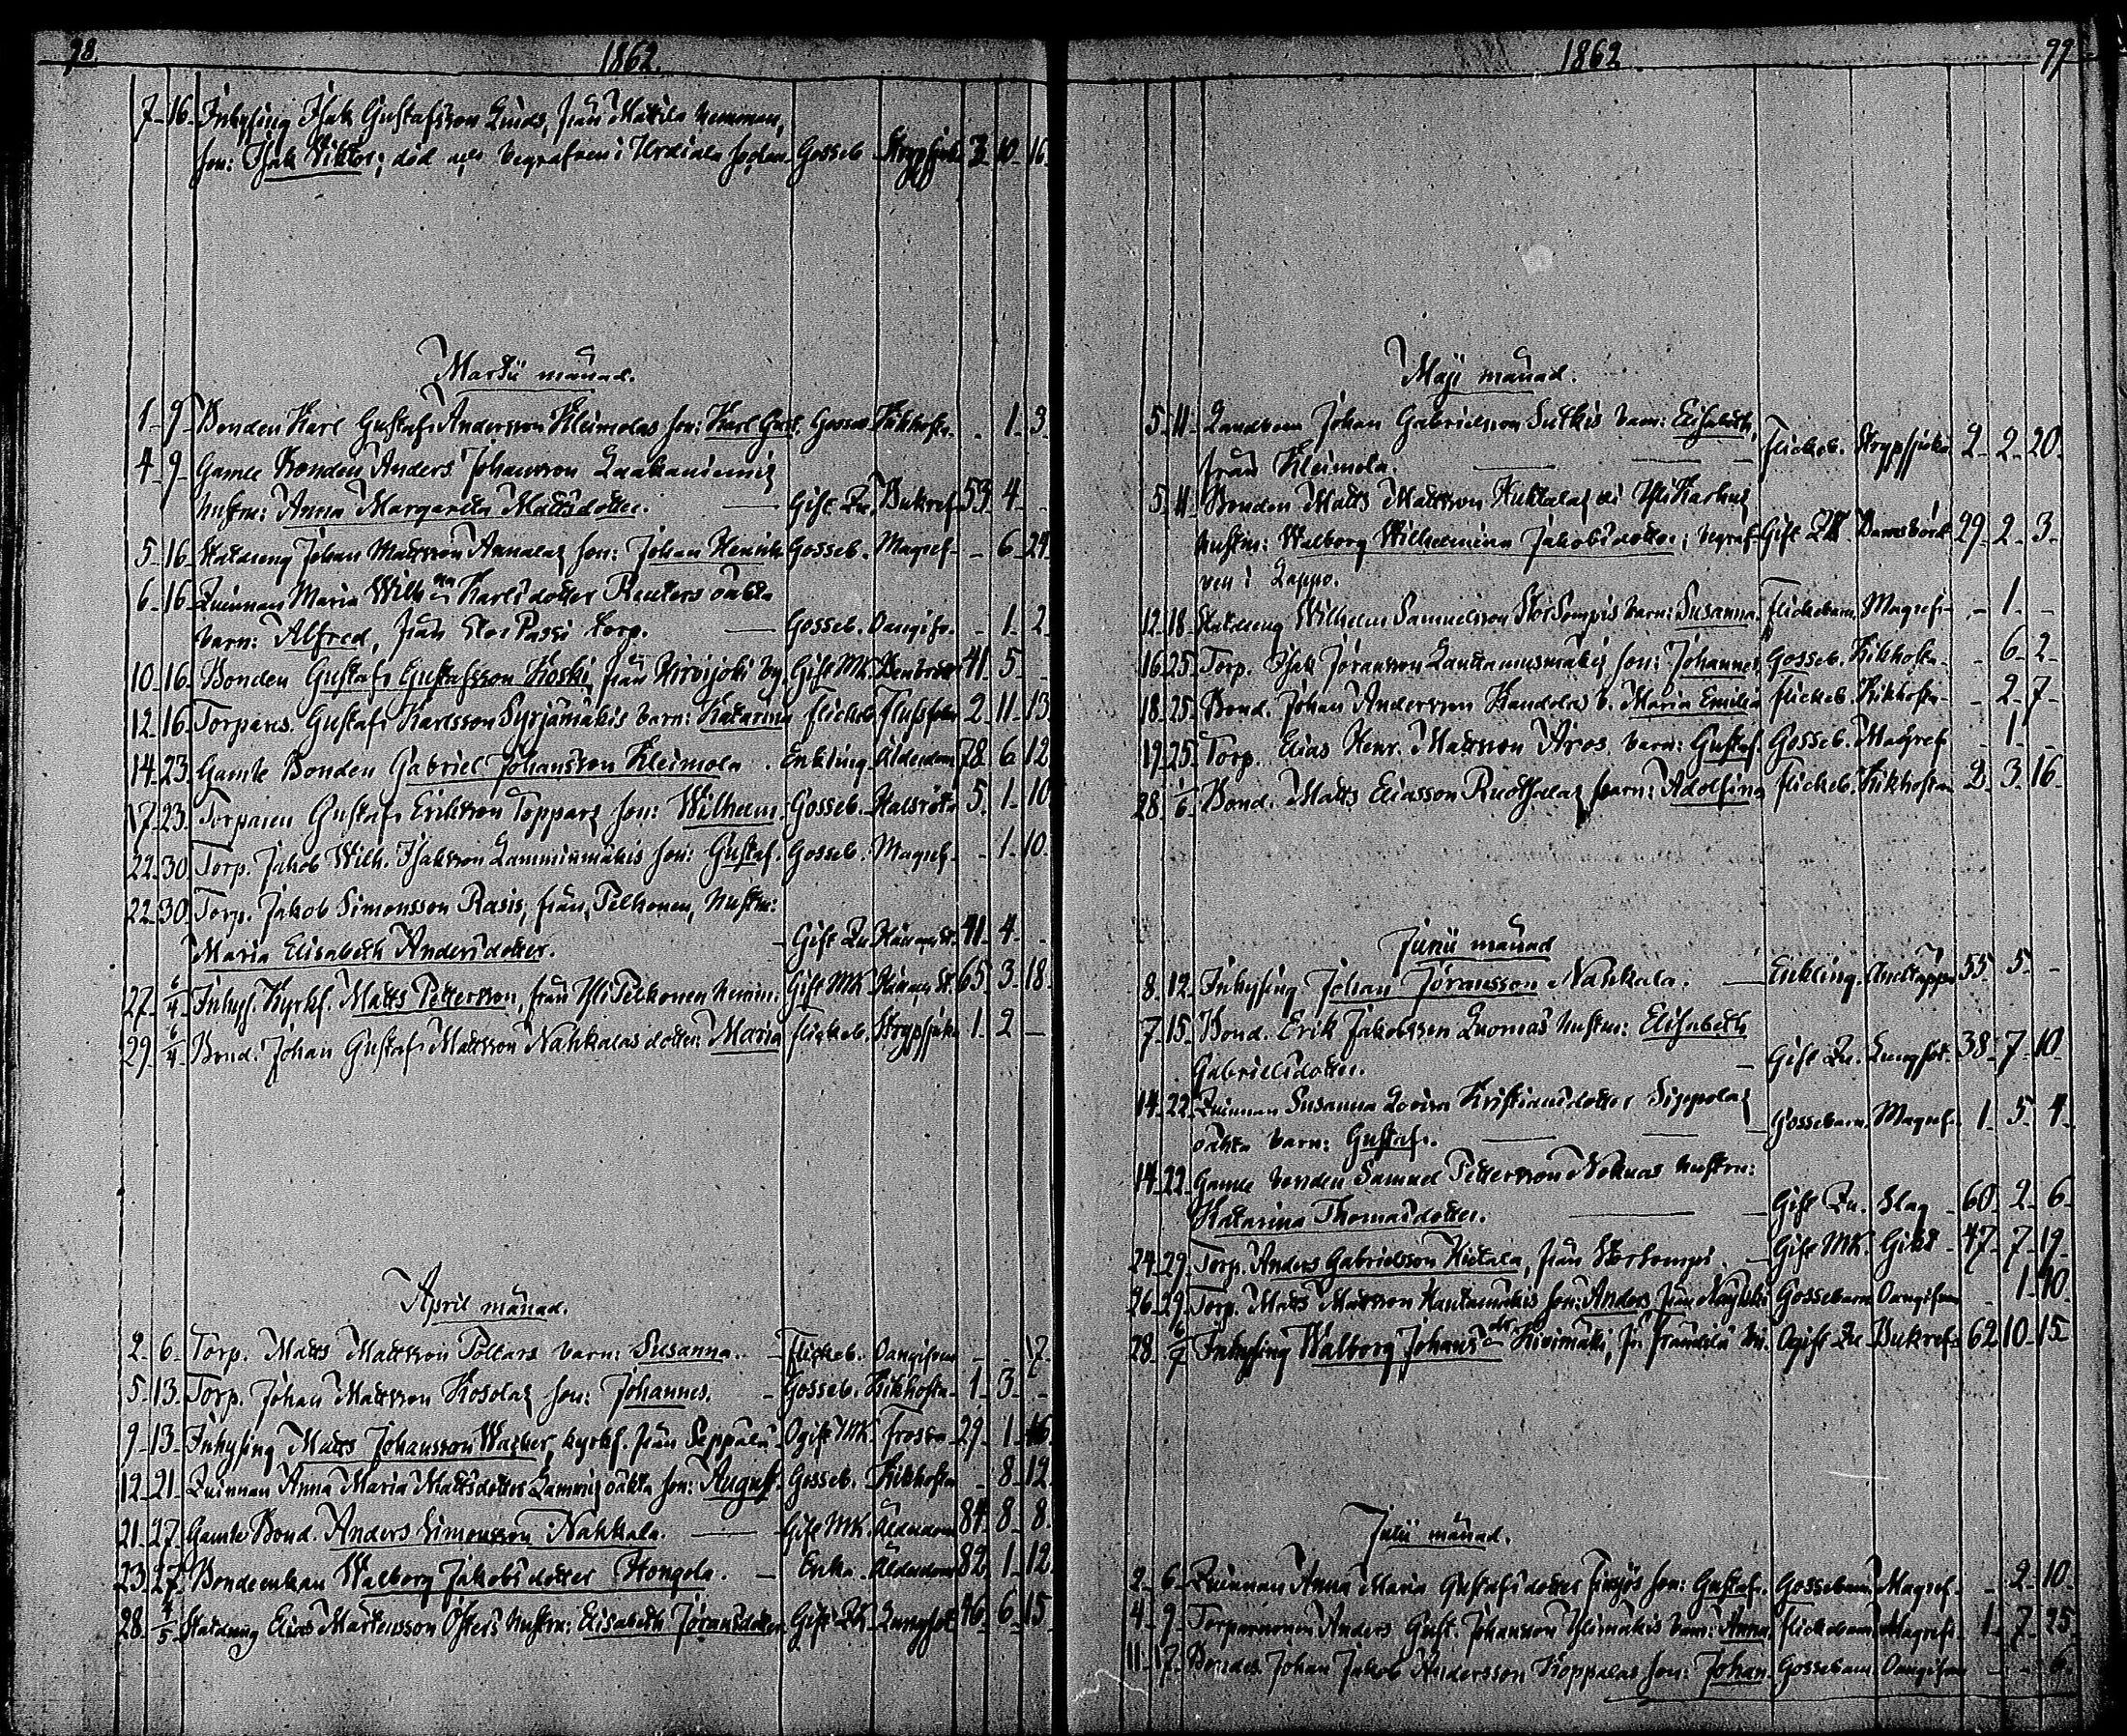 98
1862.
7. 16. Inhysing Isak Gustafsson Linds, från Mattila hemman,
son: Isak Viktor; död och begrafven i Urdiala socken. Gosseb. Strypsjuka 3. 10. 16.
Martii månad.
1. 9. Bonden Karl Gustaf Andersson Kleimolas son: Karl Gust. Gosseb. Kikhosta. - 1. 3.
4. 9. Gamle Bonden Anders Johansson
hustru: Anna Margareta Mattsdotter. Gift Qu. Bukref 59. 4. -
5. 16. Statdreng Johan Mattsson Annalas son: Johan Henrik Gosseb. Magref. - 6. 24.
6. 16. Quinnan Maria Wilh:na Karlsdotter Rauters oäkta
barn: Alfred, från Stor Passi torp. Gosseb. Oangifv. - 1. 2.
10. 16. Bonden Gustaf Gustafsson Koski, från Hirvijoki by. Gift MK. 41. 5. -
12. 16. Torparen Gustaf Karlsson Syrjämäkis barn: Katarina Flickeb. Flussfeber 2. 11. 13.
14. 23. Gamle Bonden Gabriel Johansson Kleimola. Enkling. Ålderdom 78. 6. 12.
17. 23. Torparen Gustaf Eriksson Toppars son: Wilhelm. Gosseb. Halsröta 5. 1. 10.
22. 30. Torp. Jakob Wilh. Isaksson Lamminmäkis son: Gustaf. Gosseb. Magref. - 1. 10.
22. 30. Torp. Jakob Simonsson Rasis, från Pelkonen, hustru:
Maria Elisabeth Andersdotter. Gift Qu. 41. 4. -
27. 6/4 Inhys. Kyrkf. Matts Pettersson, från Yli Pelkonen hemm. Gift MK. 65. 3. 18.
29. 6/4 Bond. Johan Gustaf Mattsson Nahkalas dotter: Maria Flickeb. Strypsjuka 1. 2. -
April månad.
2. 6. Torp. Matts Mattsson Pollars barn: Susanna. Flickeb. Oangifven - - 7.
5. 13. Torp. Johan Mattsson Kosolas son: Johannes. Gosseb. Kikhosta 1. 3. -
9. 13. Inhysing Matts Johansson Wacker, kyrkf. från Seppälä. Ogift MK. Frossa 29. 1. 16.
12. 21. Quinnan Anna Maria Mattsdotter Lammis oäkta son: August. Gosseb. Kikhosta - 8. 12.
21. 27. Gamle Bond. Anders Simonsson Nahkala. Gift MK. Ålderdom 84. 8. 8.
23. 27. Bondeenkan Walborg Jakobsdotter Hongola. Enka. Ålderdom 82. 1. 12.
28. 4/5 Statdreng Elias Mårtensson Östers hustru: Elisabeth Jöransdotter Gift QK. Lungsot 46. 6. 15.
1862
99
Maji månad.
5. 11. Landbon Johan Gabrielsson Sutkis barn: Elisabeth,
från Kleimola. Flickeb. Strypsjuka 2. 2. 20.
5. 11. Bonden Matts Mattsson Huktalas
hustru: Walborg Wilhelmina Jakobsdotter; begraf- Gift Barnsbörd 29. 2. 3.
ven i Lappo.
12. 18. Statdreng Wilhelm Samuelsson Stor Sompis barn: Susanna. Flickebarn. Magref. - 1. -
16. 25. Torp. Isak Jöransson Lautamusmäkis son: Johannes. Gosseb. Kikhosta. - 6. 2.
18. 25. Bond. Johan Andersson Kandolas b. Maria Emilia Flickeb. Kikhosta - 2. 7.
19. 25. Torp. Elias Henr. Mattsson Aros barn: Gustaf. Gosseb. Magref. - 1. -
28. 1/6 Bond. Matts Eliasson Ruotsalas barn: Adolfina Flickeb. Kikhosta 2. 3. 16.
Junii månad
8. 12. Inhysing Johan Jöransson Nahkala. Enkling. Andtäppa 55. 5. -
7. 15. Bond. Erik Jakobsson Luomas hustru: Elisabeth
Gabrielsdotter. Gift Qu. Lungsot. 38. 7. 10.
14. 22. Quinnan Susanna Lovisa Kristiansdotter Sippolas
oäkta barn: Gustaf. Gossebarn. Magref. 1. 5. 4.
14. 22. Gamle bonden Samuel Pettersson Nokuas hustru:
Katarina Thomasdotter. Gift Qu. Slag 60. 2. 6.
24. 29. Torp. Anders Gabrielsson Hietala, från Storsompi. Gift MK. Gikt 47. 7. 19.
26. 29. Torp. Matts Mattsson Hautamäkis son: Anders, från Gossebarn Oangifven - 1. 10.
28. 6/7 Inhysing Walborg Johansdr Kivimäki, fr. Fräntilä hm. Ogift Qu. Bukref 62. 10. 15.
Julii månad.
2. 6. Quinnan Anna Maria Gustafsdotter son: Gustaf. Gossebarn. Magref. - 2. 10.
4. 9. Torparsonen Anders Gust. Johansson Ylimäkis barn: Anna. Flickebarn. Magref. 1. 7. 25.
11. 17. Bonden Johan Jakob Andersson Koppalas son: Johan. Gossebarn. Oangifven - - 6.